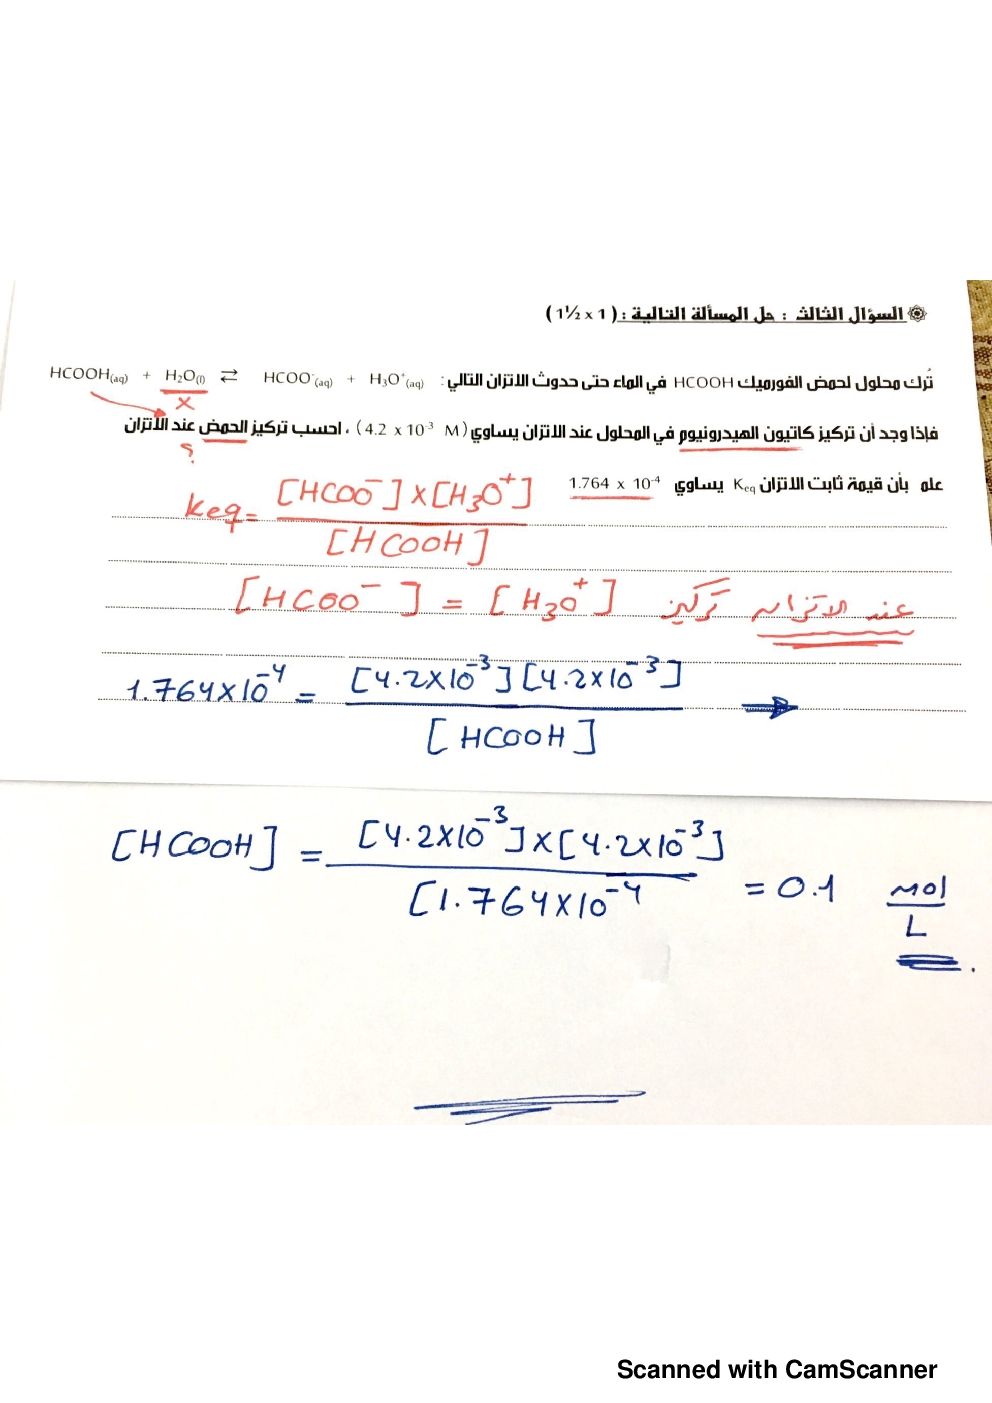 السؤال الثالث : حل المسألة التالية : ( 1 x 1½ )
تُرك محلول لحمض الفورميك HCOOH في الماء حتى حدوث الاتزان التالي : HCOOH(aq) + H₂O(l) ⇄ HCOO⁻(aq) + H₃O⁺(aq)
X
فإذا وجد أن تركيز كاتيون الهيدرونيوم في المحلول عند الاتزان يساوي (4.2 x 10⁻³ M) ، احسب تركيز الحمض عند الاتزان
؟
علم بأن قيمة ثابت الاتزان Keq يساوي 1.764 x 10⁻⁴
Keq = [HCOO⁻] X [H₃O⁺] / [HCOOH]
عند الاتزان تركيز [HCOO⁻] = [H₃O⁺]
1.764X10⁻⁴ = [4.2X10⁻³] [4.2X10⁻³] / [HCOOH] →
[HCOOH] = [4.2X10⁻³] X [4.2X10⁻³] / [1.764X10⁻⁴ = 0.1 mol/L
Scanned with CamScanner